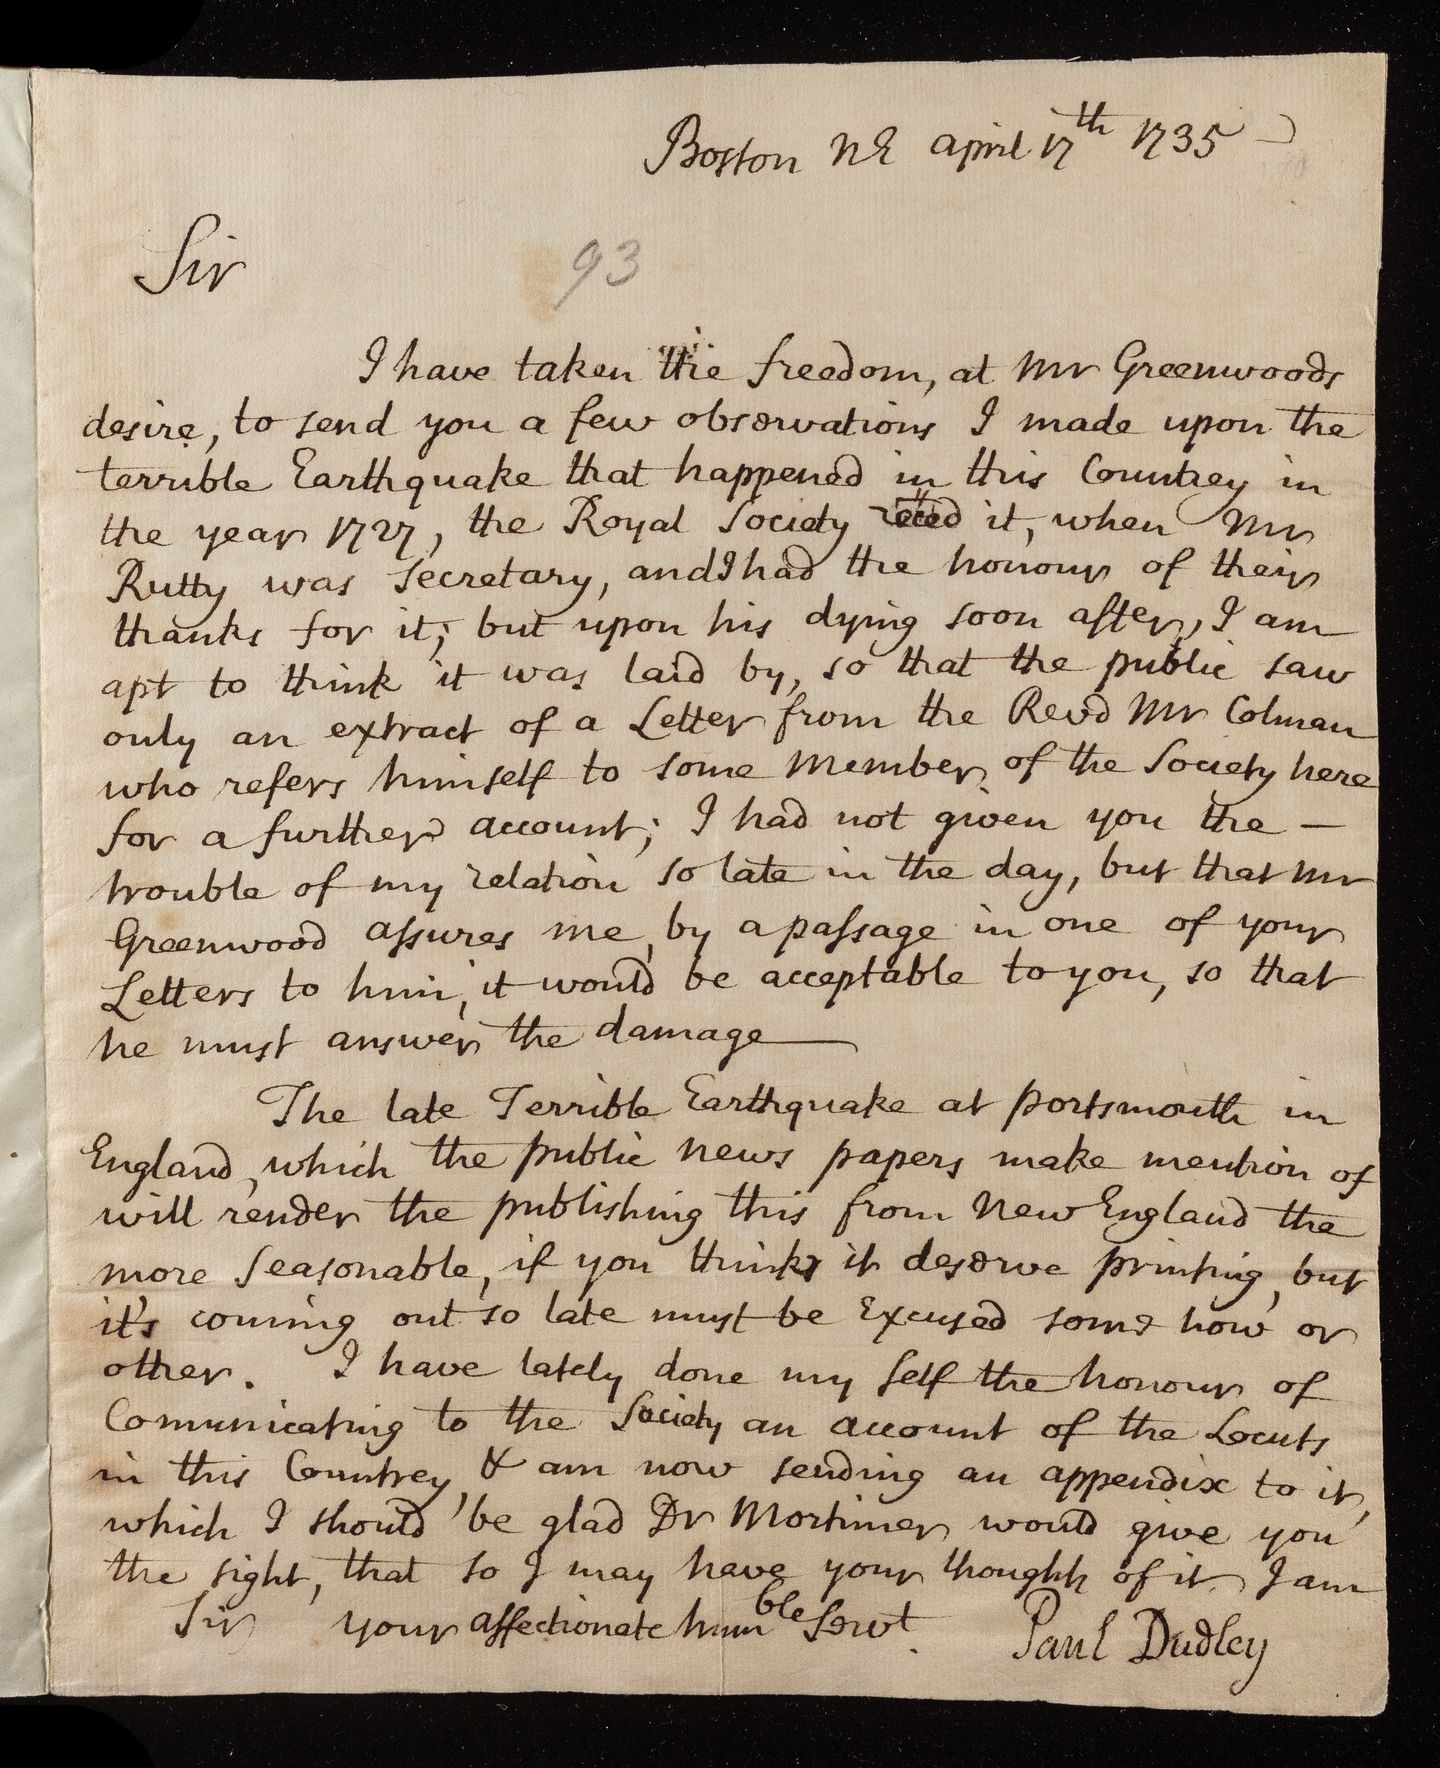 Boston NE april 17th 1735
Sir
93
I have taken the freedom, at Mr Greenwoods
desire, to send you a few observations I made upon the
terrible Earthquake that happened in this Countrey in
the year 1727, the Royal Society it, when Mr
Rutty was secretary, and I had the honour of their
thanks for it; but upon his dying soon after, I am
apt to think it was laid by, so that the public saw
only an extract of a Letter from the Revd Mr Colman
who refers himself to some Member of the Society here
for a further account; I had not given you the —
trouble of my relation so late in the day, but that Mr
Greenwood assures me, by a passage in one of your
Letters to him, it would be acceptable to you, so that
he must answer the damage
The late Terrible Earthquake at portsmouth in
England, which the public news papers make mention of
will render the publishing this from New England the
more seasonable, if you think it deserve printing, but
it's coming out so late must be Excused some how or
other. I have lately done my self the honour of
Comunicating to the Society an account of the Locuts
in this Countrey, & am now sending an appendix to it,
which I should be glad Dr Mortimer would give you
the sight, that so I may have your thoughts of it. I am
Sir your affectionate humble Servt. Paul Dudley